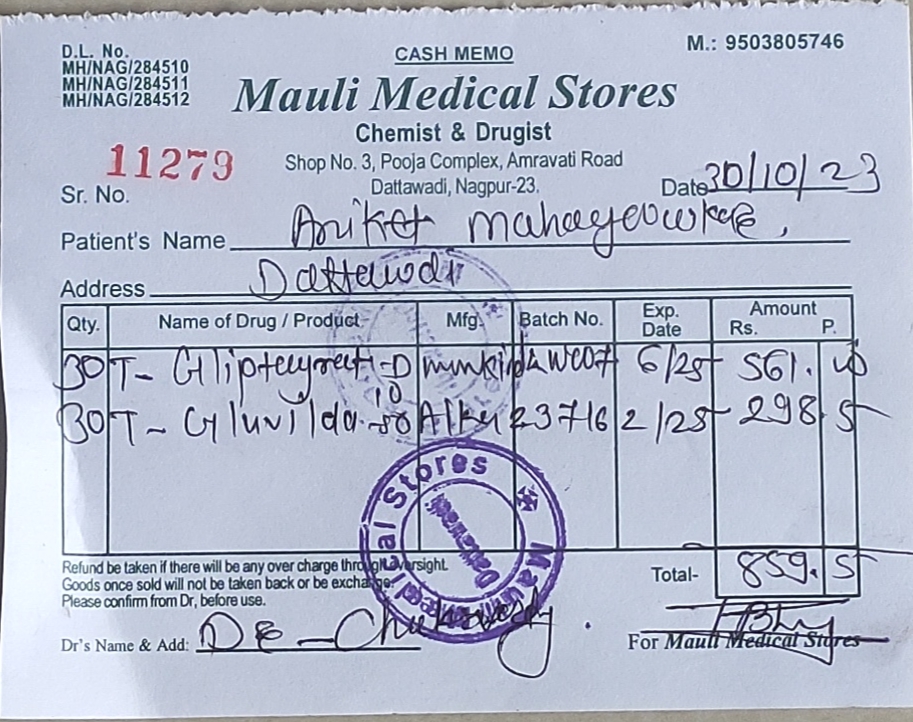 D.L. No.
MH/NAG/284510
MH/NAG/284511
MH/NAG/284512
CASH MEMO
M.: 9503805746
Mauli Medical Stores
Chemist & Drugist
Shop No. 3, Pooja Complex, Amravati Road
Dattawadi, Nagpur-23.
Sr. No. 11279
Date 30/10/23
Patient's Name Aniket
Address Dattawadi
Qty. Name of Drug / Product Mfg. Batch No. Exp. Date Amount Rs. P.
30 T- 6/25 561.
10
30 T- Gluvilda-50 Alke 23716 2/25 298. 5
Refund be taken if there will be any over charge through oversight.
Goods once sold will not be taken back or be exchange.
Please confirm from Dr, before use.
Total- 859. 5
Dr's Name & Add: Dr -
For Mauli Medical Stores
Mauli Medical Stores
Dattawadi